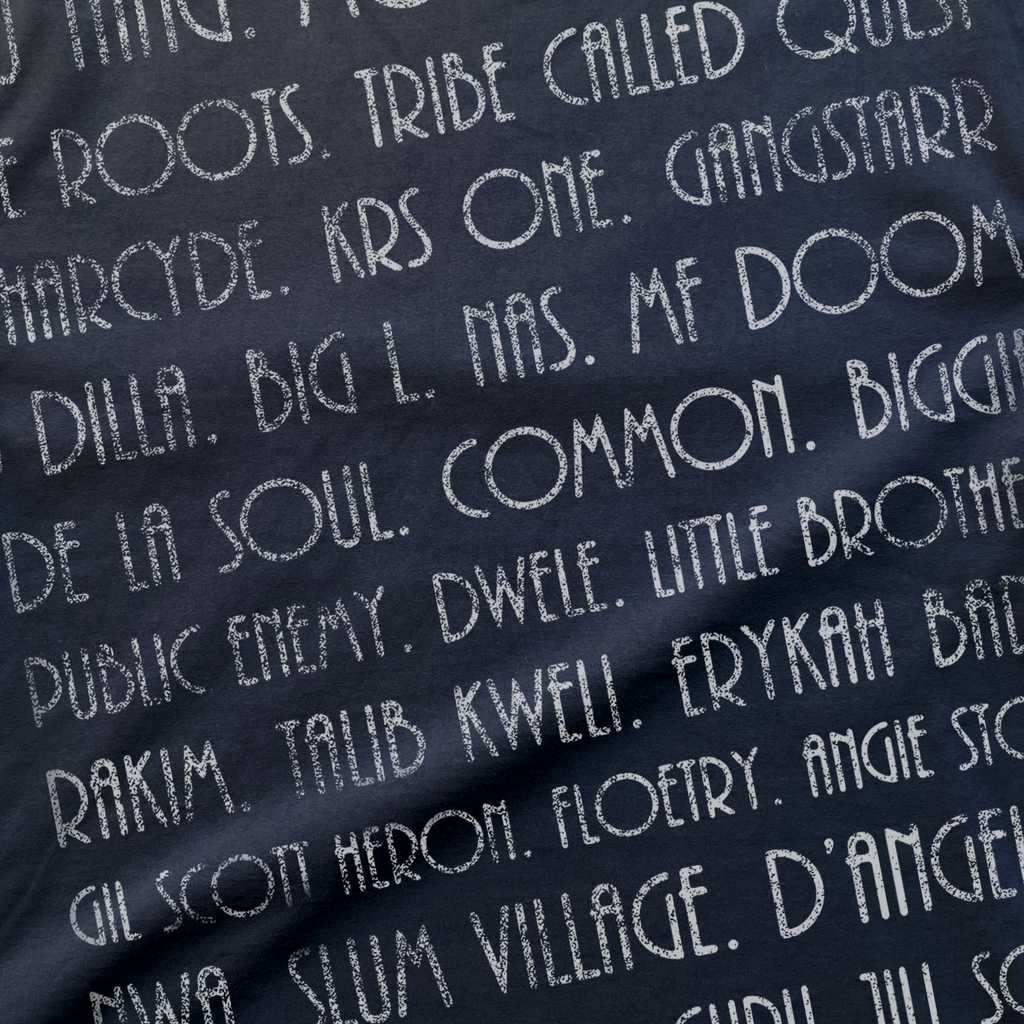 ROOTS. TRIBE CALLED QUEST
HARCYDE. KRS ONE. GANGSTARR
DILLA. BIG L. NAS. MF DOOM
DE LA SOUL. COMMON. BIGGI
PUBLIC ENEMY. DWELE. LITTLE BROTHE
RAKIM. TALIB KWELI. ERYKAH BAD
GIL SCOTT HERON. FLOETRY. ANGIE STO
NWA. SLUM VILLAGE. D'ANGEL
GURU. JILL SC